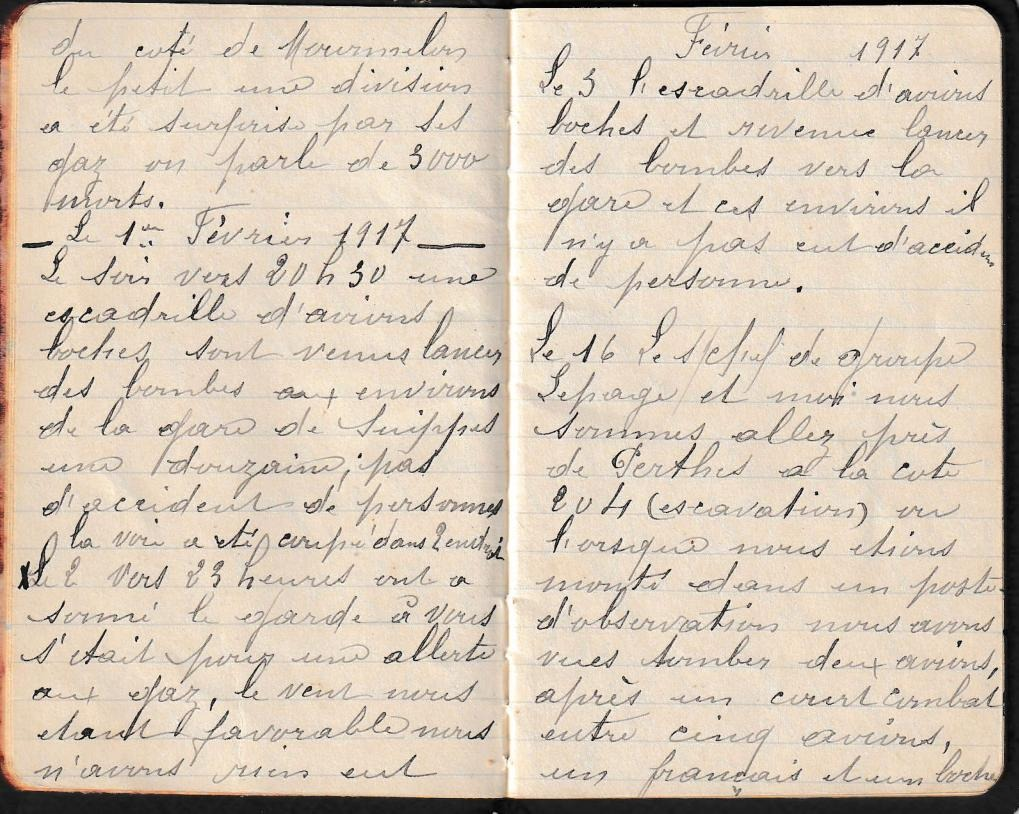 du coté de Mourmelon
le petit une division
a été surprise par les
gaz on parle de 3000
morts.
Le 1er Février 1917
Le soir vers 20 h 30 une
escadrille d'avions
boches sont venus lancer
des bombes aux environs
de la gare de Suippes
une douzaine, pas
d'accident de personnes
la voie a été coupé dans 2 endroit
Le 2 vers 23 heures ont a
sonné le garde à vous
s'etait pour une allerte
aux gaz, le vent nous
etant favorable nous
n'avons rien eut
Février 1917
Le 3 l'escadrille d'avions
boches et revenue lancer
des bombes vers la
gare et ces environs il
n'y a pas eut d'acciden
de personne.
Le 16 Le s/chef de groupe
Lepage et moi nous
sommes allez près
de Perthes a la cote
204 (escavation) ou
l'orsque nous etions
monté dans un poste
d'observation nous avons
vues tomber deux avions,
après un court combat
entre cinq avions,
un français et un boche